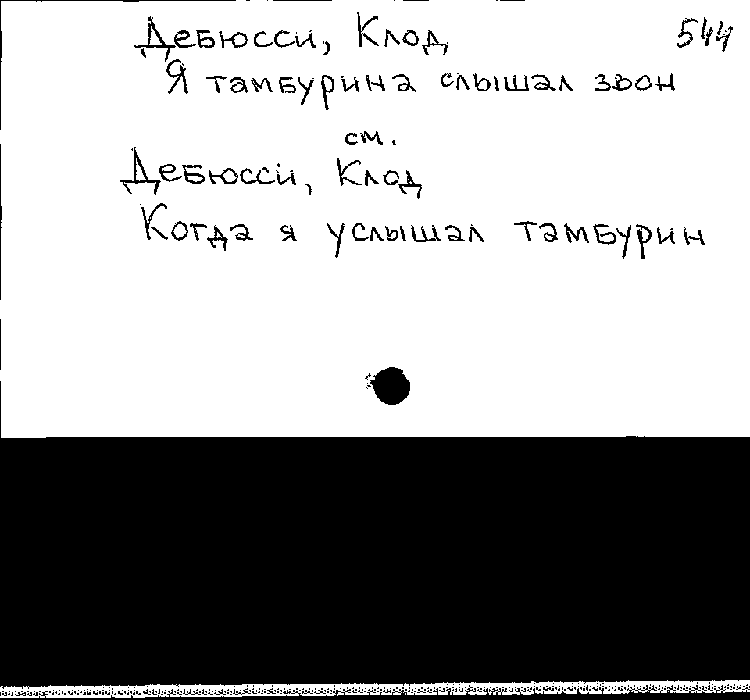 Дебюсси, Клод 544
Я тамбурина слышал звон
см.
Дебюсси, Клод
Когда я услышал тамбурин